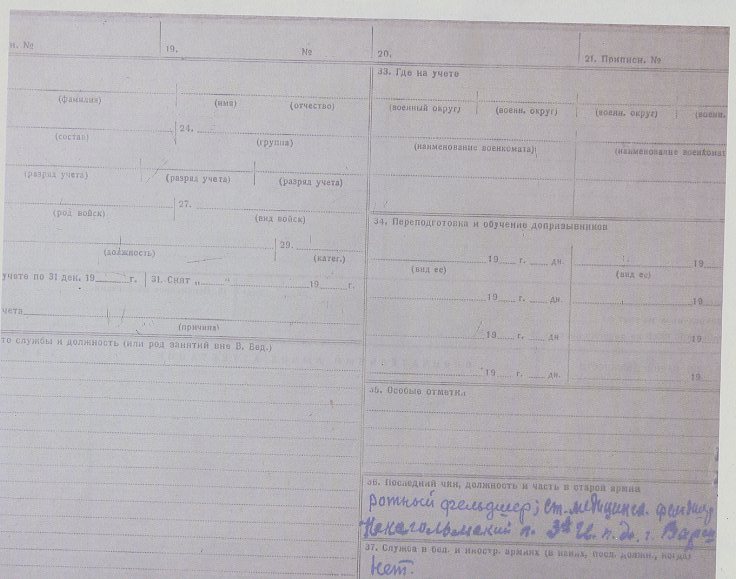 н. № 19. № 20. 21. Приписн. №
33. Где на учете
(фамилия) (имя) (отчество) (военный округ) (военн. округ) (военн. округ) (военн.
(состав) 24. (группа) (наименование военкомата) (наименование военкомат
(разряд учета) (разряд учета) (разряд учета)
(род войск) 27. (вид войск)
34. Переподготовка и обучение допризывников
(должность) 29. (катег.)
19 г. дн. 19
(вид ее) (вид ее)
учете по 31 дек. 19 г. 31. Снят „ “ 19 г.
19 г. дн. 19
чета
(причина)
19 г. дн. 19
то службы и должность (или род занятий вне В. Вед.)
19 г. дн. 19
35. Особые отметки
36. Последний чин, должность и часть в старой армии
ротный фельдшер; ст. медицинс.
п. 3й п. д. г.
37. Служба в бел. и иностр. армиях (в каких, посл. должн., когда)
Нет.